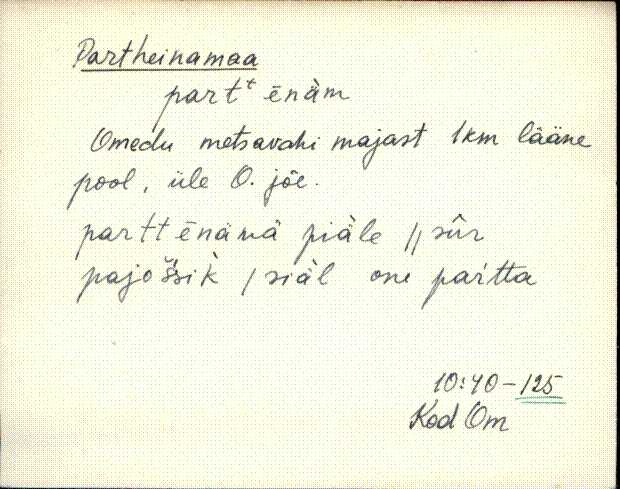 Partheinamaa
partᵗ ēnäm
Omedu metsavahi majast 1km lääne
pool, üle O. jõe.
partt ēnämä piäle // sûr
pajo šsik / siäl one par̀tta
10:40-125
Kod Om